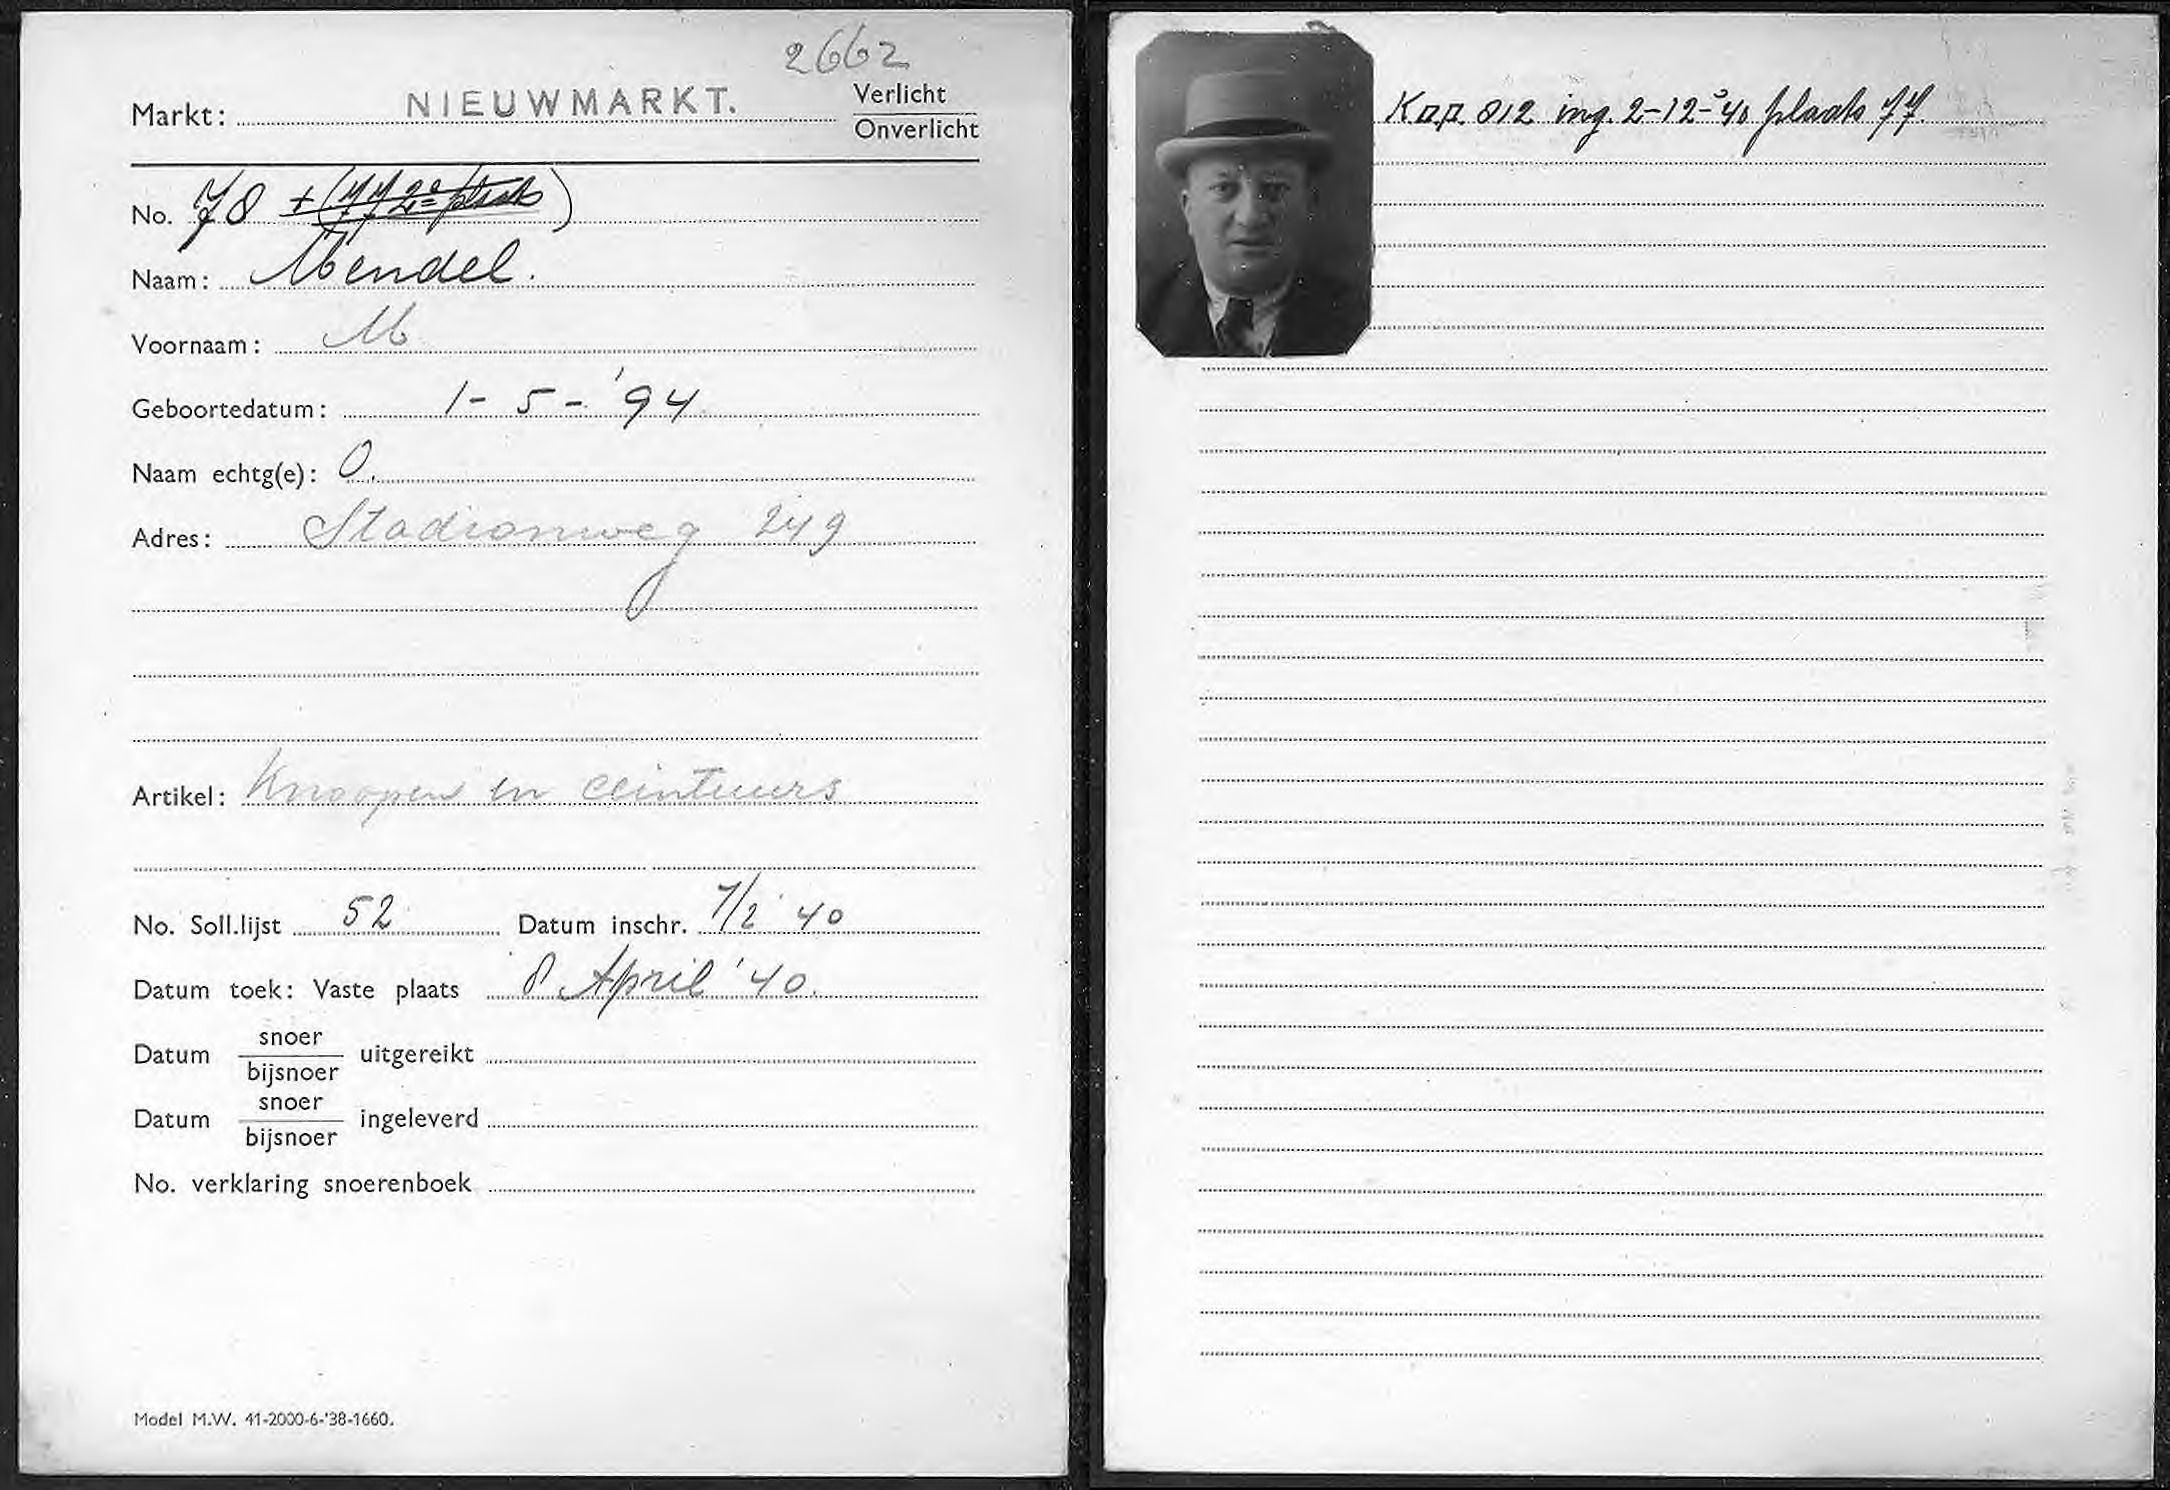 2662
Markt: NIEUWMARKT. Verlicht
Onverlicht
No. 78 + (77 2e plaats)
Naam: Mendel.
Voornaam: M
Geboortedatum: 1-5-'94
Naam echtg(e): O.
Adres: Stadionweg 249
Artikel: Knoopen en ceintuurs
No. Soll.lijst 52 Datum inschr. 7/2 '40
Datum toek: Vaste plaats 8 April '40.
Datum snoer
bijsnoer uitgereikt
Datum snoer
bijsnoer ingeleverd
No. verklaring snoerenboek
Model M.W. 41-2000-6-'38-1660.
812 ing. 2-12-'40 plaats 77.